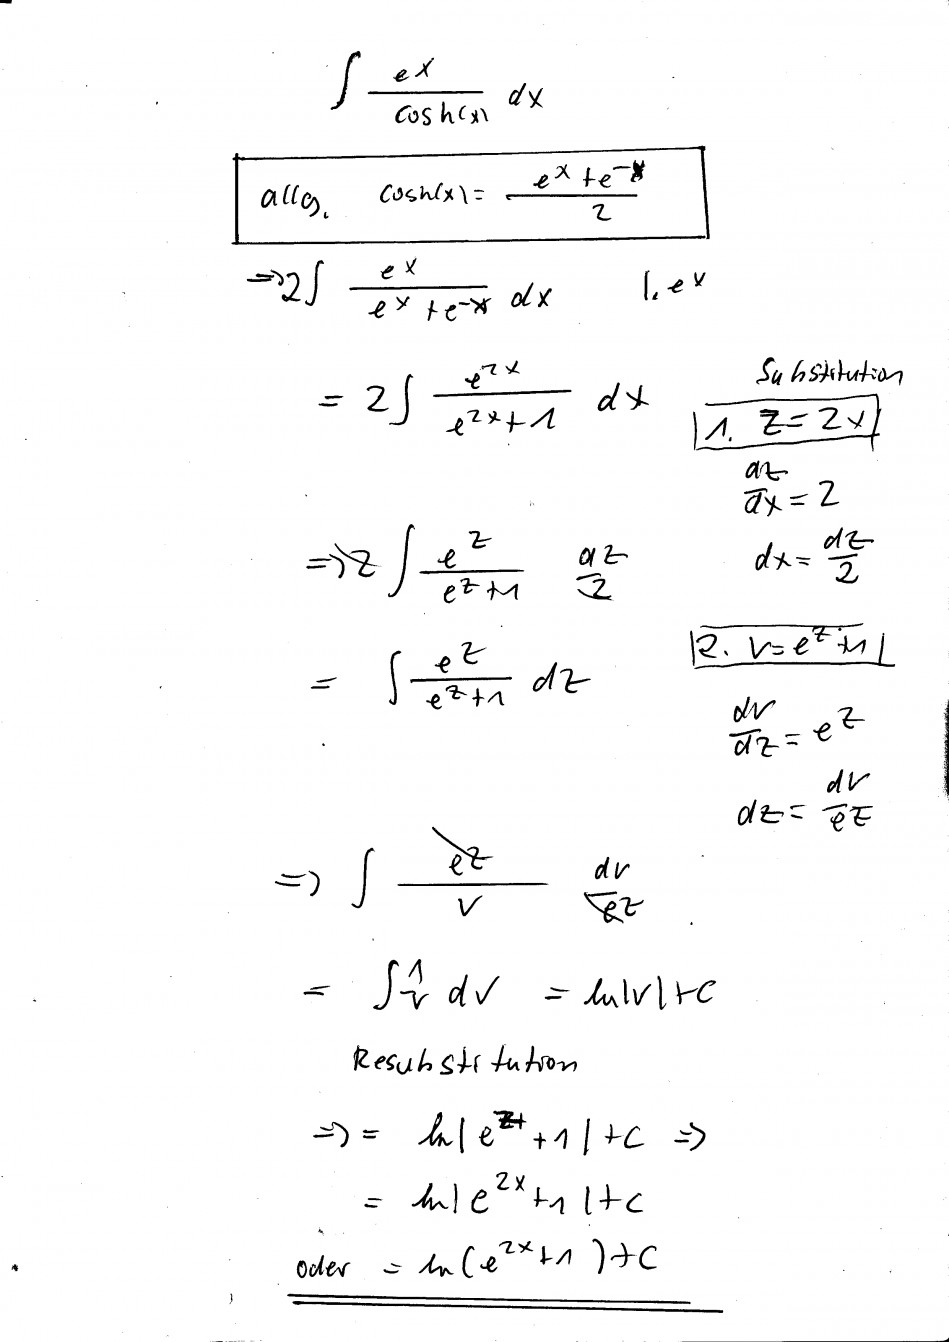 ∫ e^x / cosh(x) dx
allg. cosh(x) = (e^x + e^-x) / 2
=> 2∫ e^x / (e^x + e^-x) dx |. e^x
= 2∫ e^2x / (e^2x + 1) dx
Substitution
1. z = 2x
dz/dx = 2
dx = dz/2
=> 2 ∫ e^z / (e^z + 1) dz/2
= ∫ e^z / (e^z + 1) dz
2. v = e^z + 1
dv/dz = e^z
dz = dv/e^z
=> ∫ e^z / v dv/e^z
= ∫ 1/v dv = ln|v| + C
Resubstitution
=> = ln|e^z + 1| + C =>
= ln|e^2x + 1| + C
oder = ln(e^2x + 1) + C